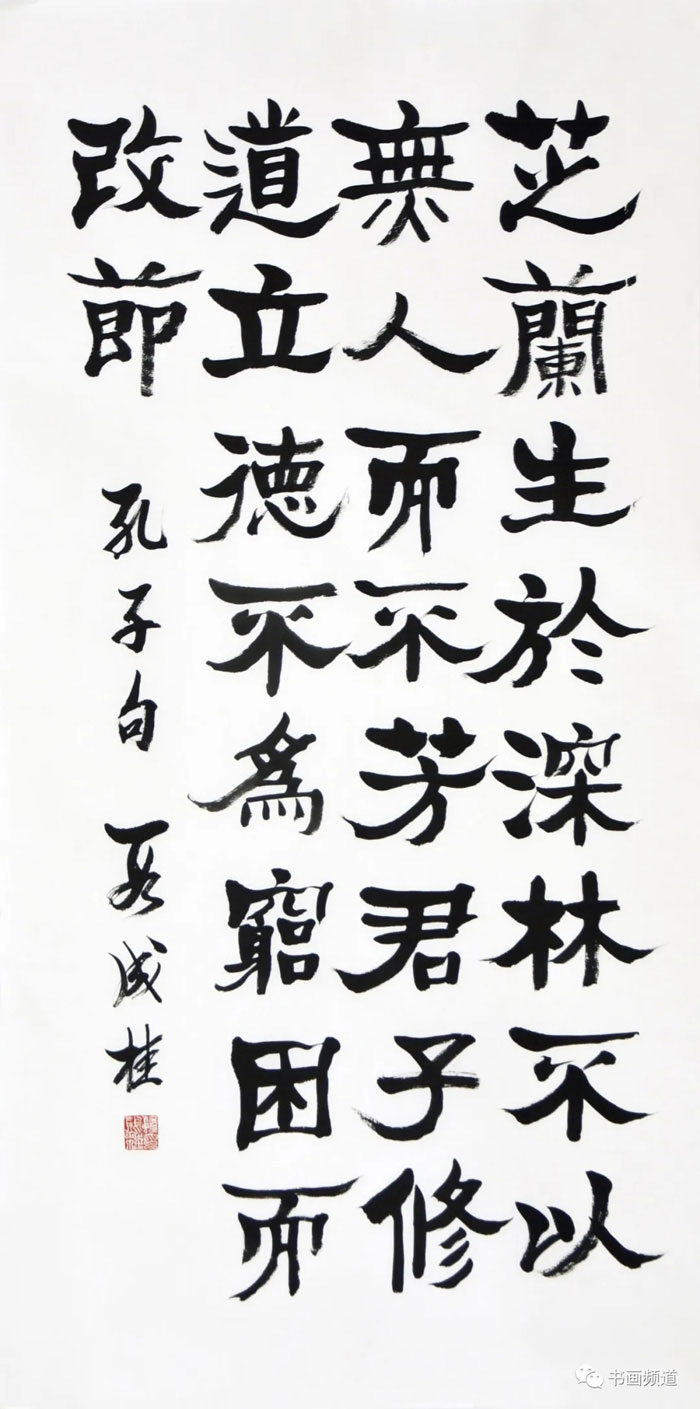 芝蘭生於深林不以
無人而不芳君子修
道立德不為窮困而
改節
孔子句
段成桂
书画频道